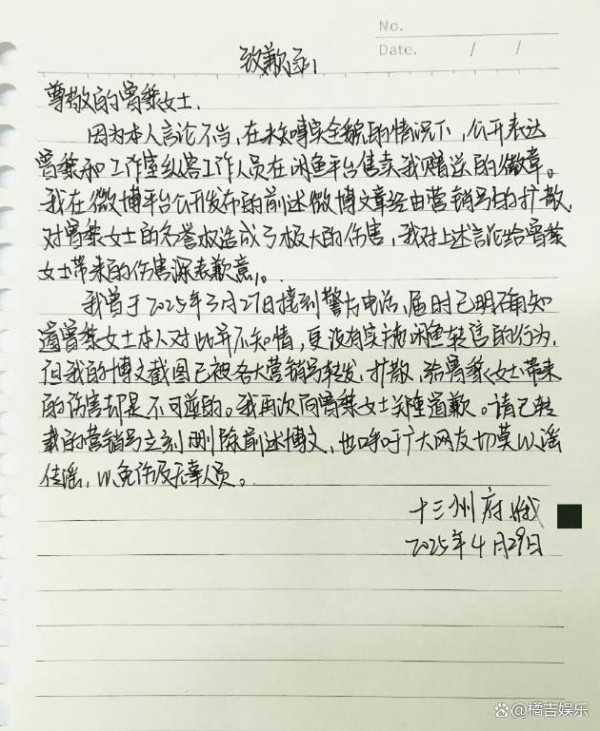 No.
Date. / /
致歉函
尊敬的曾黎女士,
因为本人言论不当,在未知事实全貌的情况下,公开表达
曾黎和工作室纵容工作人员在闲鱼平台售卖我赠送的徽章。
我在微博平台公开发布的前述微博文章经由营销号的扩散,
对曾黎女士的名誉权造成了极大的伤害,我对上述言论给曾黎
女士带来的伤害深表歉意。
我曾于2025年3月27日接到警方电话,届时已明确知
道曾黎女士本人对此并不知情,更没有实施闲鱼转售的行为,
但我的博文截图已被各大营销号转发、扩散,给曾黎女士带来
的伤害却是不可逆的。我再次向曾黎女士关隆道歉。请已转
载的营销号立刻删除前述博文,也呼吁广大网友切莫以谣
传谣,以免伤及无辜人员。
十三州府
2025年4月29日
橘吉娱乐